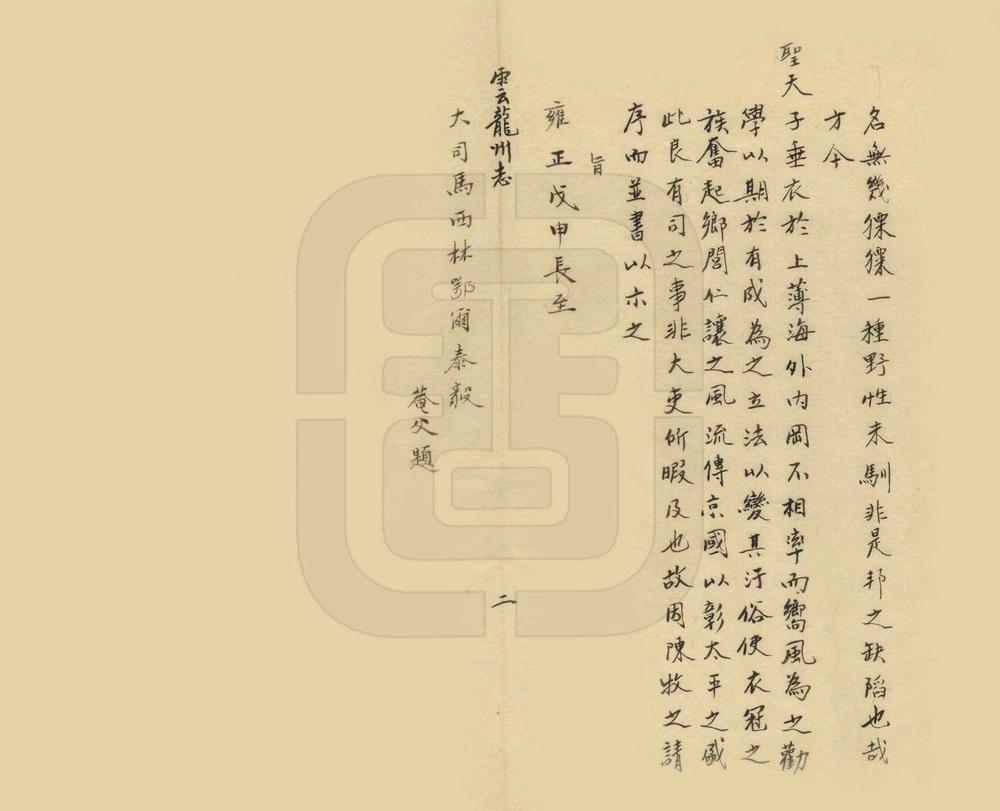 名無幾猓猓一種野性未馴非是邦之缺陷也哉
方今
聖天子垂衣於上薄海外內罔不相率而嚮風為之勸
學以期於有成為之立法以變其汙俗使衣冠之
族奮起鄉閭仁讓之風流傳京國以彰太平之盛
此良有司之事非大吏所暇及也故因陳牧之請
序而並書以示之
旨
雍正戊申長至
雲龍州志
二
大司馬西林鄂爾泰毅
菴父題